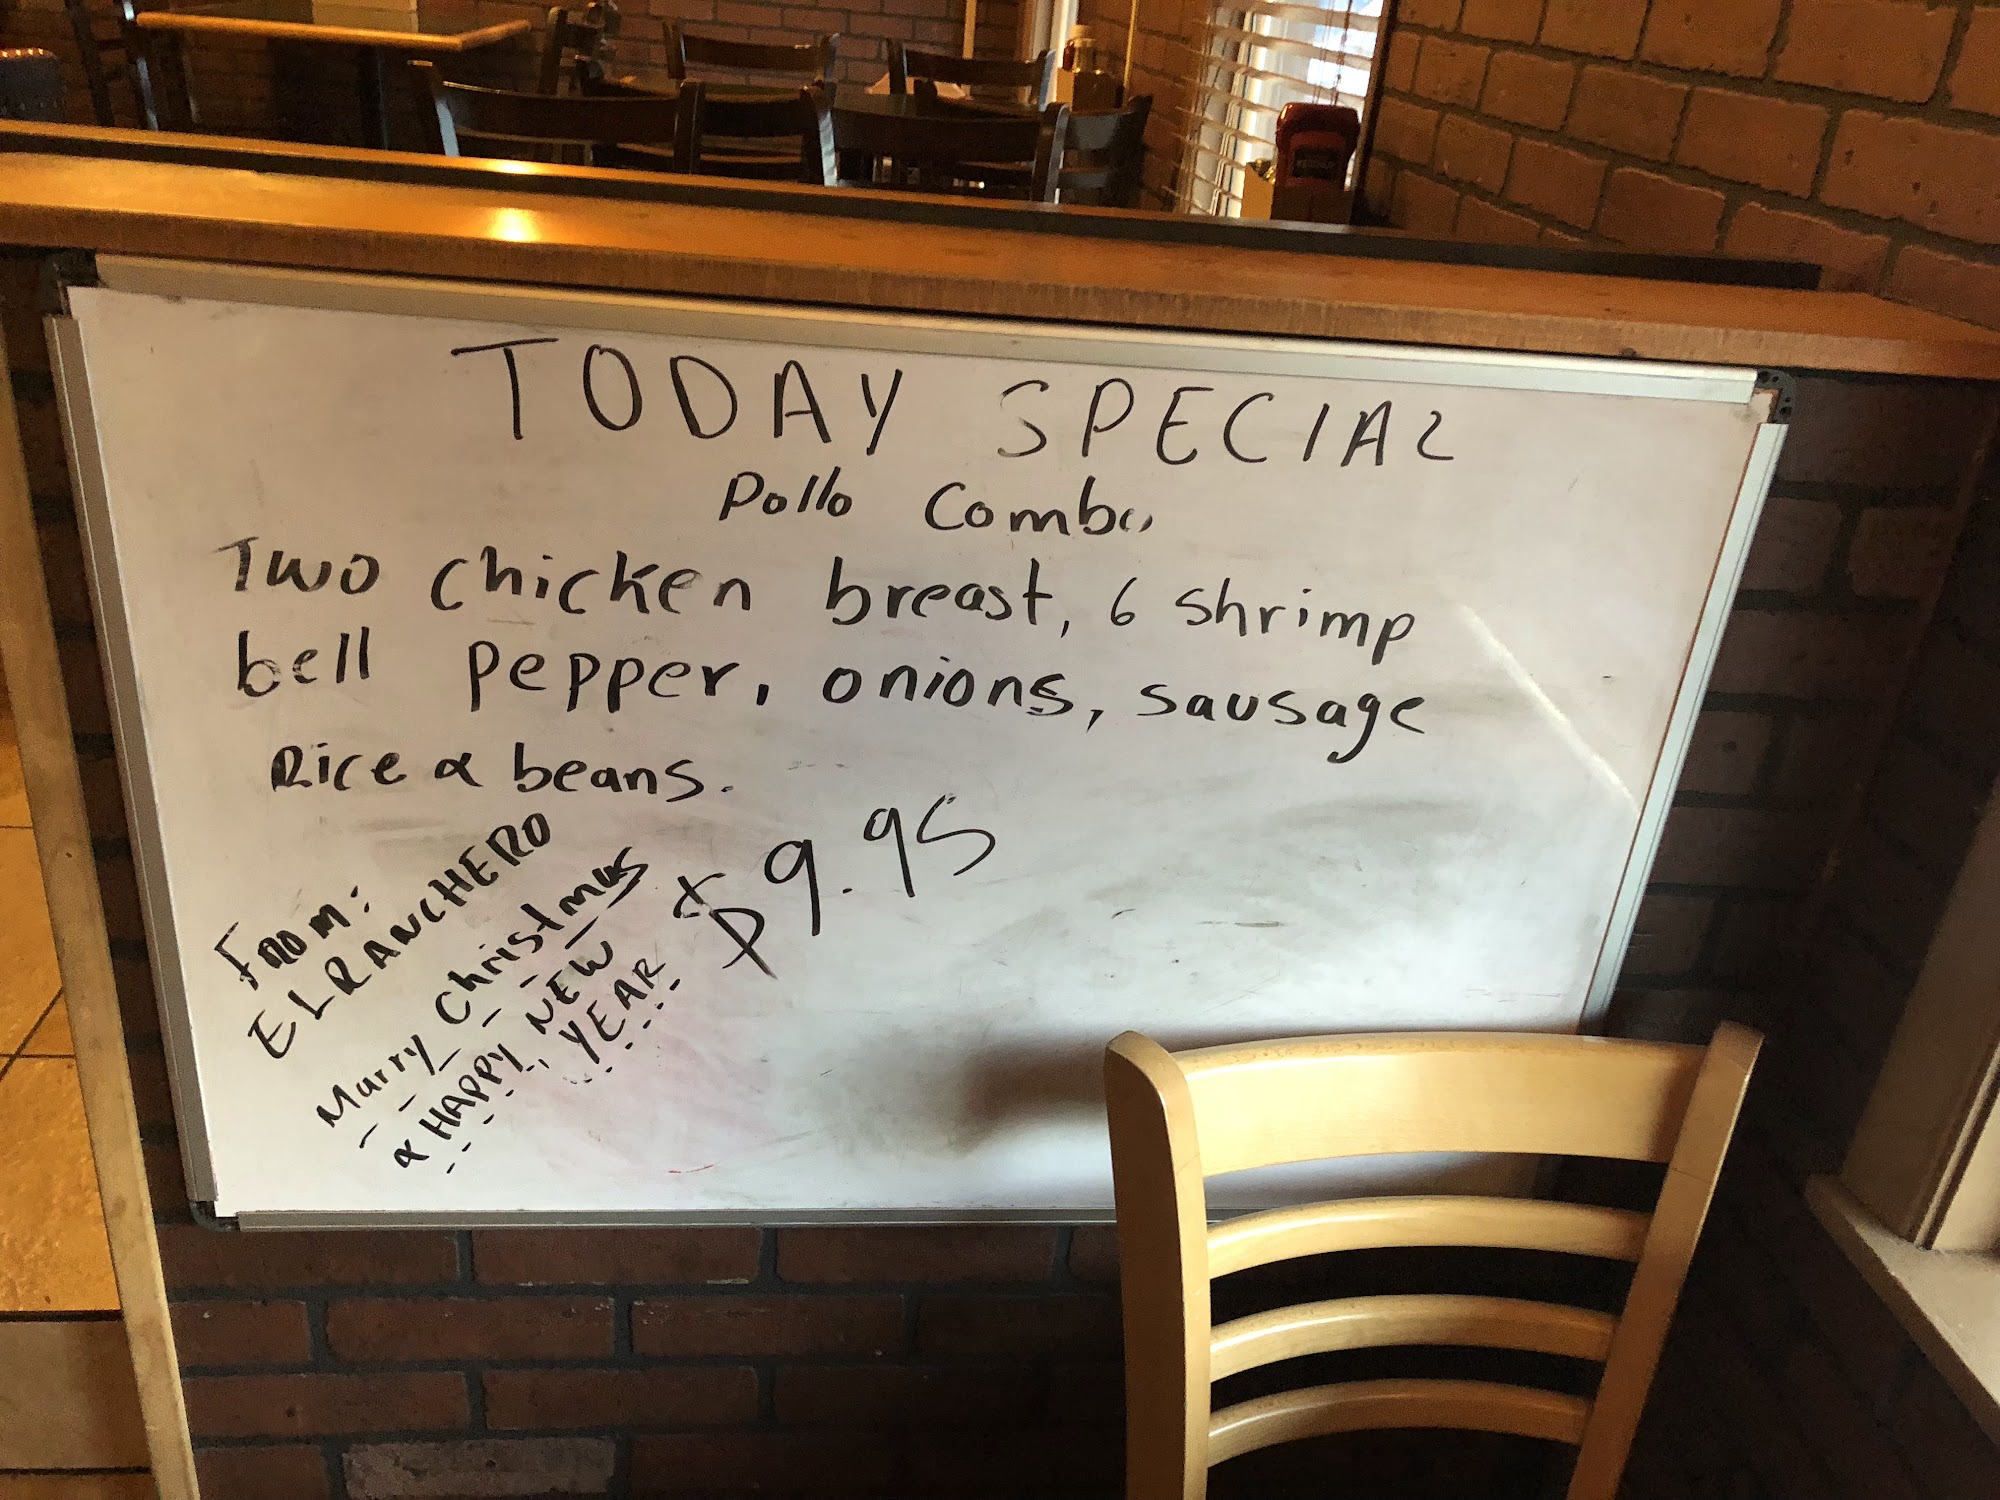 TODAY SPECIAL
Pollo Combo
Two chicken breast, 6 shrimp
bell pepper, onions, sausage
Rice & beans.
$9.95
From:
EL RANCHERO
Marry Christmas
& HAPPY NEW
YEAR